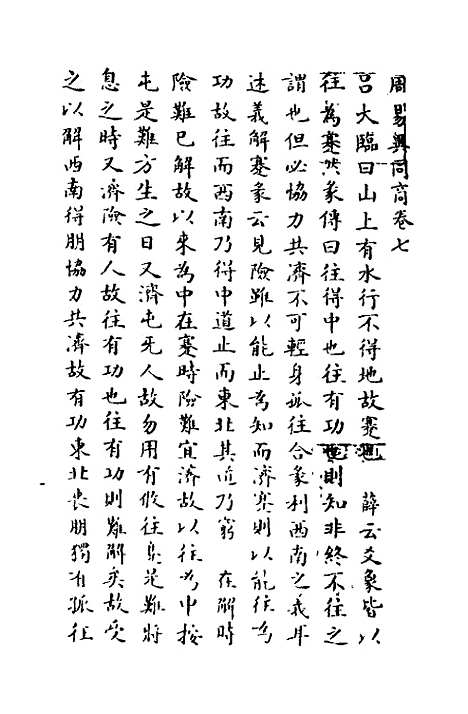 周易異同商卷七
呂大臨曰山上有水行不得地故蹇 薛云爻象皆以
往為蹇然彖傳曰往得中也往有功則知非終不往之
謂也但必協力共濟不可輕身孤往合彖利西南之義耳
述義解蹇彖云見險雖以能止為知而濟蹇則以能往為
功故往而西南乃得中道止而東北其道乃窮 在解時
險難已解故以來為中在蹇時險難宜濟故以往為中按
屯是難方生之日又濟屯无人故勿用有攸往是難將
息之時又濟險有人故往有功也往有功則難解矣故受
之以解西南得朋協力共濟故有功東北喪朋獨有孤往